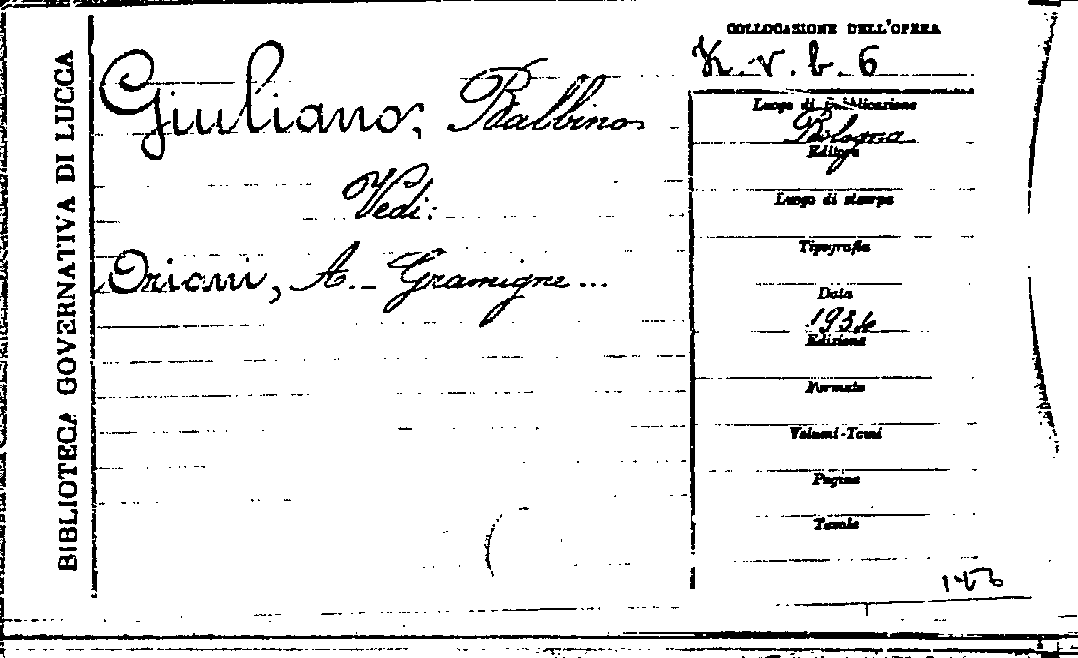 BIBLIOTECA GOVERNATIVA DI LUCCA
Giuliano, Balbino
Vedi:
Oriani, A. - Gramigne...
COLLOCAZIONE DELL'OPERA
K. v. b. 6
Luogo di pubblicazione
Bologna
Editore
Luogo di stampa
Tipografia
Data
1936
Edizione
Formato
Volumi-Tomi
Pagine
Tavole